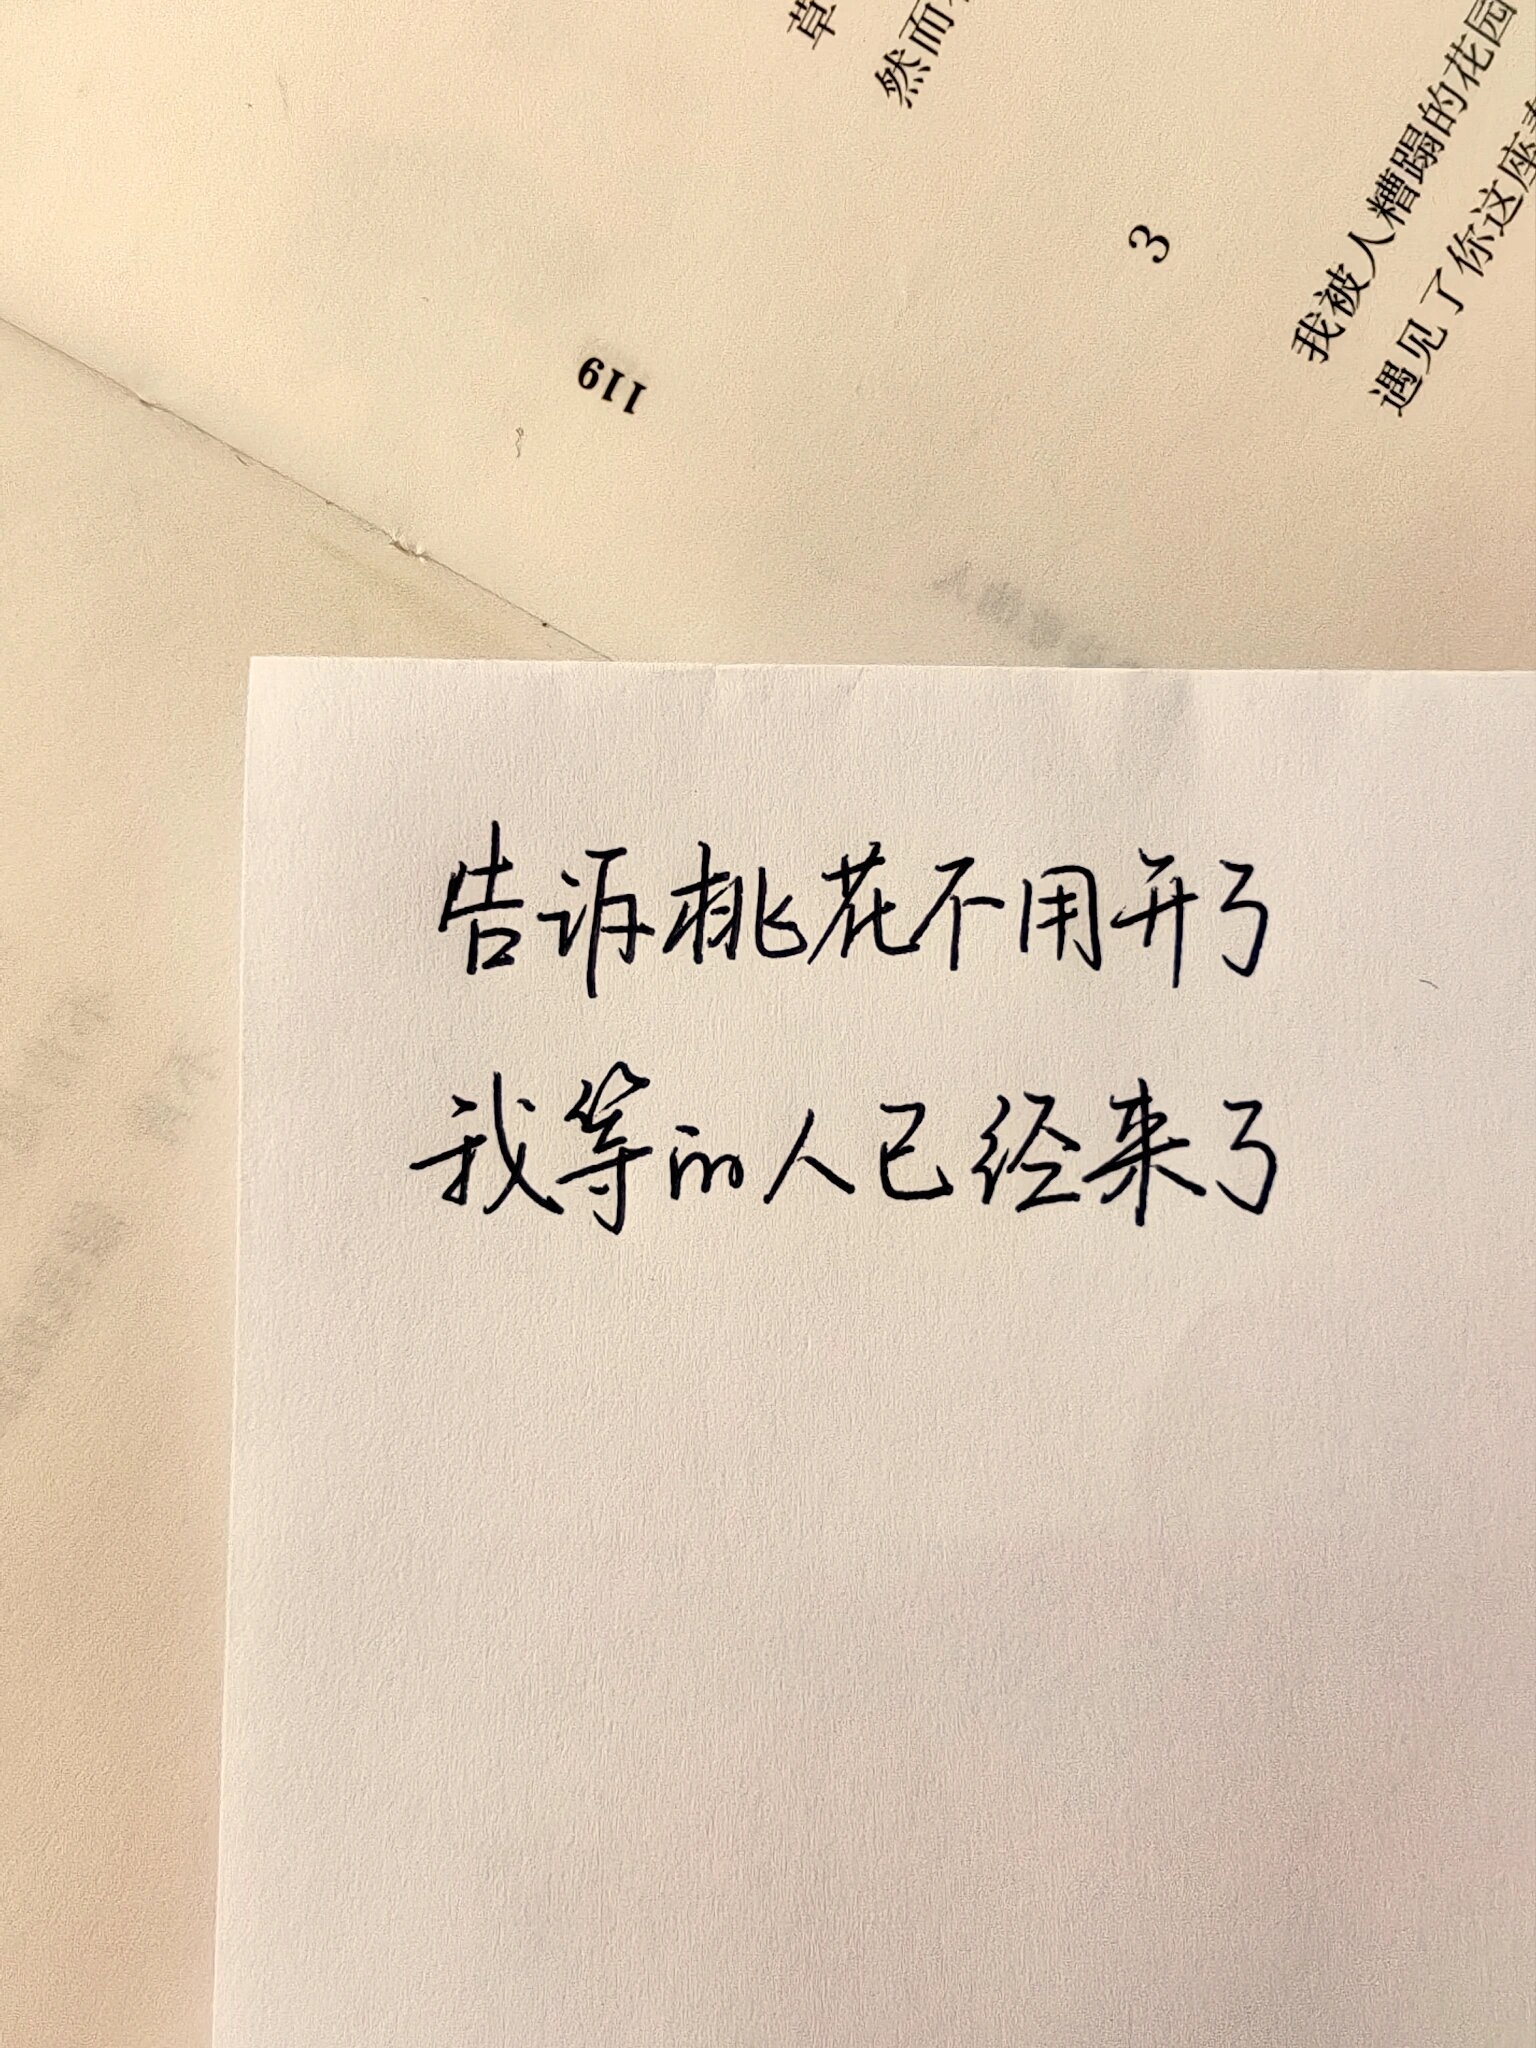 草
然而
3
我被人糟蹋的花园
遇见了你这座
119
告诉桃花不用开了
我等的人已经来了